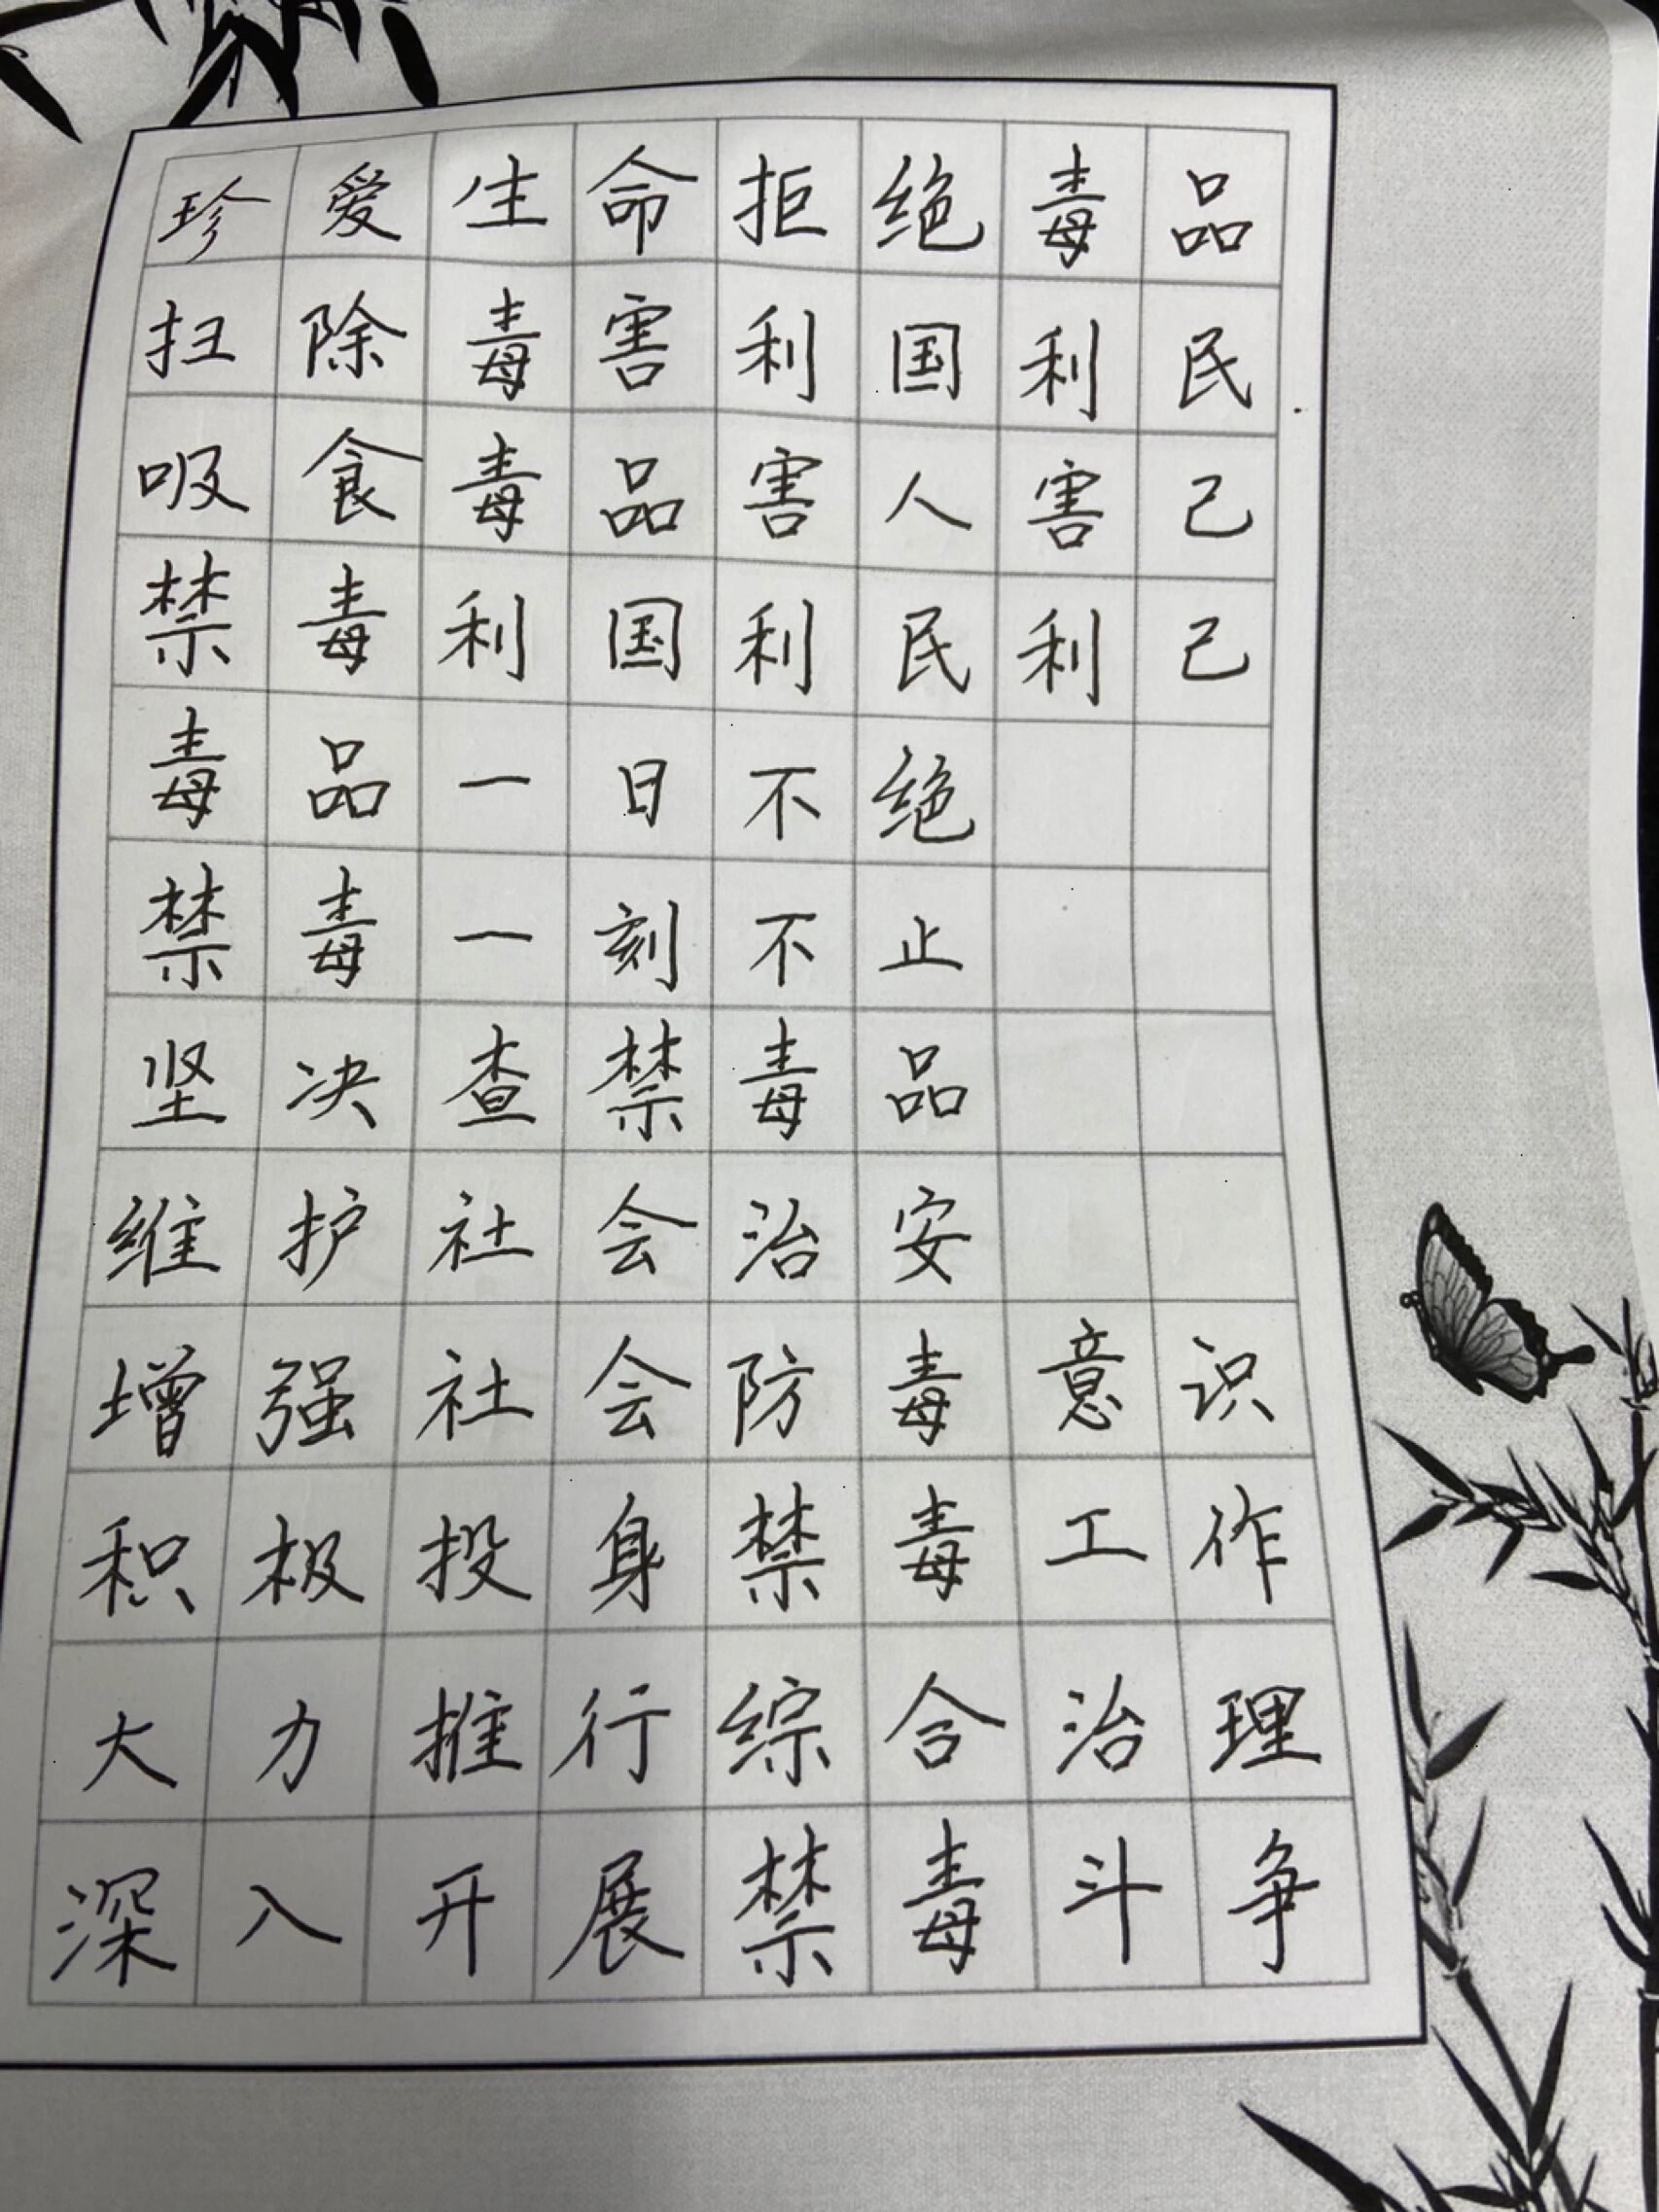 珍爱生命拒绝毒品
扫除毒害利国利民
吸食毒品害人害己
禁毒利国利民利己
毒品一日不绝
禁毒一刻不止
坚决查禁毒品
维护社会治安
增强社会防毒意识
积极投身禁毒工作
大力推行综合治理
深入开展禁毒斗争